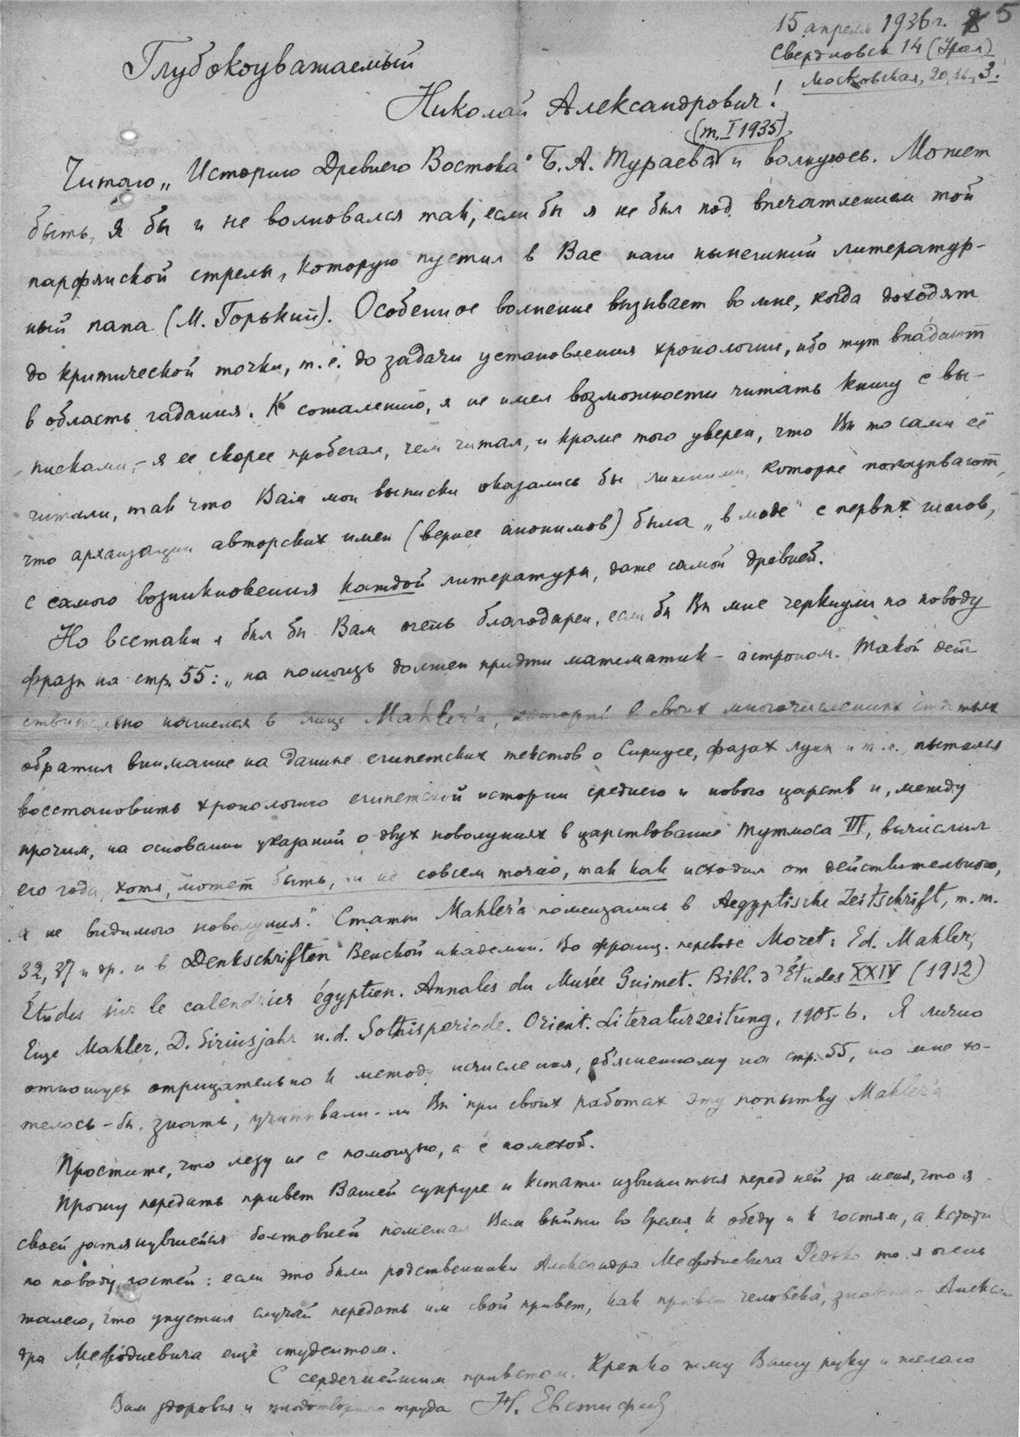 15 апрель 1936 г. 5
Свердловск 14 (Урал)
Московская, 20, 3.
Глубокоуважаемый
Николай Александрович!
(т. I 1935)
Читаю „Историю Древнего Востока" Б. А. Тураева и волнуюсь. Может
быть, я бы и не волновался так, если бы я не был под впечатлением той
парфянской стрелы, которую пустил в Вас наш нынешний литератур-
ный папа (М. Горький). Особенное волнение вызывает во мне, когда доходят
до критической точки, т. е. до задачи установления хронологии, ибо тут впадают
в область гадания. К сожалению, я не имел возможности читать книгу с вы-
писками, – я ее скорее пробегал, чем читал, и кроме того уверен, что Вы то сами её
читали, так что Вам мои выписки оказались бы лишними, которые показывают,
что архаизация авторских имен (вернее анонимов) была „в моде" с первых шагов,
с самого возникновения каждой литературы, даже самой древней.
Но всетаки я был бы Вам очень благодарен, если бы Вы мне черкнули по поводу
фразы на стр. 55: „на помощь должен придти математик – астроном. Такой дей
ствительно нашелся в лице Mahler'a, который в своих многочисленных статьях
обратил внимание на данные египетских текстов о Сириусе, фазах луны и т. п. пытался
восстановить хронологию египетской истории среднего и нового царств и, между
прочим, на основании указаний о двух новолуниях в царствование Тутмоса III, вычислил
его годы, хотя, может быть, и не совсем точно, так как исходил от действительного,
а не видимого новолуния". Статьи Mahler'a помещались в Aegyptische Zeitschrift, т. т.
32, 37 и др. и в Denkschriften Венской академии. Во франц. переводе Moret: Ed. Mahler,
Études sur le calendrier égyptien. Annales du Musée Guimet. Bibl. d'Études XXIV (1912)
Еще Mahler, D. Siriusjahr u. d. Sothisperiode. Orient. Literaturzeitung, 1905-6. Я лично
отношусь отрицательно к методу исчисления, объясненному на стр. 55, но мне хо-
телось-бы, знать, учитывали-ли Вы при своих работах эту попытку Mahler'a
Простите, что лезу не с помощью, а с помехой.
Прошу передать привет Вашей супруге и кстати извиниться перед ней за меня, что я
своей затянувшейся болтовней помешал Вам выйти во время к обеду и к гостям, а кстати
по поводу гостей: если это были родственники Александра Мефодиевича то я очень
жалею, что упустил случай передать им свой привет, как привет человека, Алексан
дра Мефодиевича ещё студентом.
С сердечнейшим приветом. Крепко жму Вашу руку и желаю
Вам здоровья и плодотворного труда Н. Евстифеев